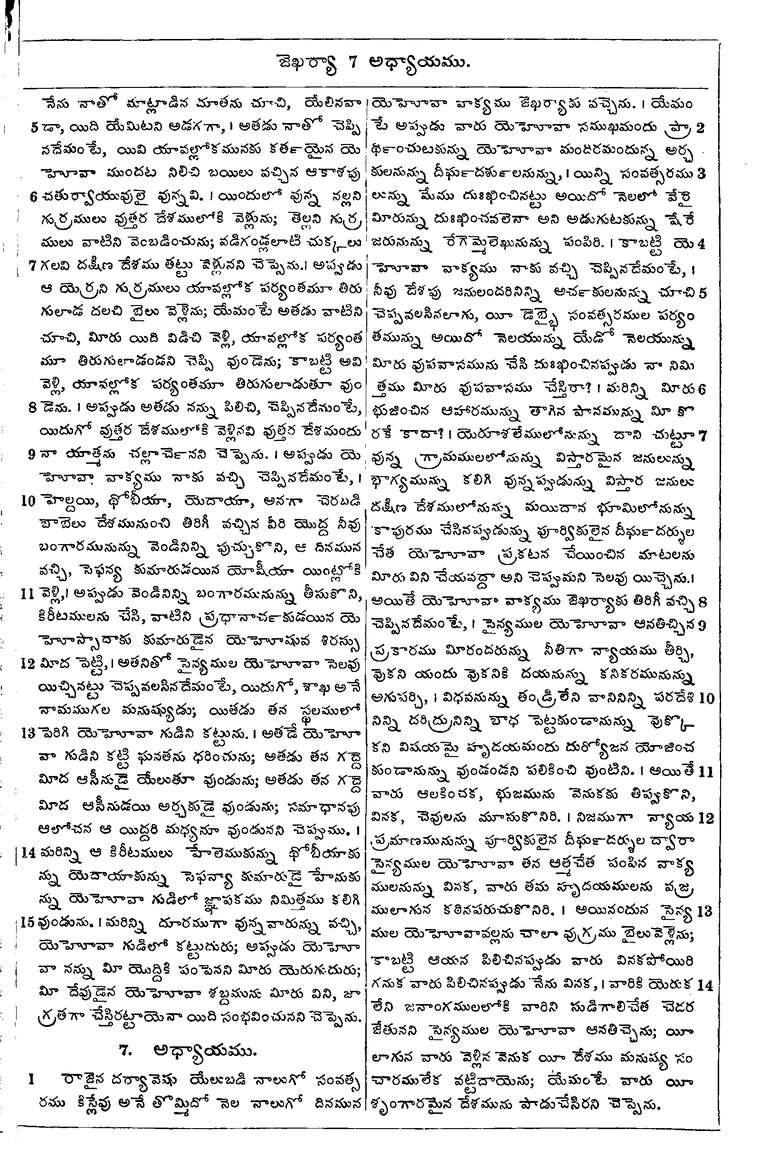 జెఖర్యా 7 అధ్యాయము.
నేను నాతో మాట్లాడిన దూతను చూచి, యేలినవా
5 డా, యిది యేమిటని అడగగా, । అతడు నాతో చెప్పి
నదేమంటే, యివి యావల్లోకమునకు కర్తయైన యె
హోవా ముందట నిలిచి బయిలు వచ్చిన ఆకాశపు
6 చతుర్వాయువులై వున్నవి. । యిందులో వున్న నల్లని
గుర్రములు వుత్తర దేశములోకి వెళ్లును; తెల్లని గుర్ర
ములు వాటిని వెంబడించును; వడిగండ్లలాటి చుక్కలు
7 గలవి దక్షిణ దేశము తట్టు వెళ్లునని చెప్పెను. । అప్పుడు
ఆ యెర్రని గుర్రములు యావల్లోక పర్యంతమూ తిరు
గులాడ దలచి బైలు వెళ్లెను; యేమంటే అతడు వాటిని
చూచి, మీరు యిది విడిచి వెళ్లి, యావల్లోక పర్యంత
మూ తిరుగులాడండని చెప్పి వుండెను; కాబట్టి అవి
వెళ్లి, యావల్లోక పర్యంతమూ తిరుగులాడుతూ వుం
8 డెను. । అప్పుడు అతడు నన్ను పిలిచి, చెప్పినదేమంటే,
యిదుగో వుత్తర దేశములోకి వెళ్లినవి వుత్తర దేశమందు
9 నా యాత్మను చల్లార్చెనని చెప్పెను. । అప్పుడు యె
హోవా వాక్యము నాకు వచ్చి చెప్పినదేమంటే, ।
10 హెల్దయి, థోబీయా, యెదాయా, అనగా చెరబడి
బాబెలు దేశమునుంచి తిరిగీ వచ్చిన వీరి యొద్ద నీవు
బంగారమునున్ను వెండినిన్ని పుచ్చుకొని, ఆ దినమున
వచ్చి, సెఫన్య కుమారుడయిన యోషీయా యింట్లోకి
11 వెళ్లి, । అప్పుడు వెండినిన్ని బంగారమునున్ను తీసుకొని,
కిరీటములను చేసి, వాటిని ప్రధానార్చకుడయిన యె
హోస్సాదాకు కుమారుడైన యెహోషువ శిరస్సు
12 మీద పెట్టి, । అతనితో సైన్యముల యెహోవా సెలవు
యిచ్చినట్టు చెప్పవలసినదేమంటే, యిదుగో, శాఖ అనే
నామముగల మనుష్యుడు; యితడు తన స్థలములో
13 పెరిగి యెహోవా గుడిని కట్టును. । అతడే యెహో
వా గుడిని కట్టి ఘనతను ధరించును; అతడు తన గద్దె
మీద ఆసీనుడై యేలుతూ వుండును; అతడు తన గద్దె
మీద ఆసీనుడయి అర్చకుడై వుండును; సమాధానపు
ఆలోచన ఆ యిద్దరి మధ్యనూ వుండునని చెప్పుము. ।
14 మరిన్ని ఆ కిరీటములు హేలెముకున్ను థోబీయాకు
న్ను యెదాయాకున్ను సెఫన్యా కుమారుడై హేనుకు
న్ను యెహోవా గుడిలో జ్ఞాపకము నిమిత్తము కలిగి
15 వుండును. । మరిన్ని దూరముగా వున్నవారున్ను వచ్చి,
యెహోవా గుడిలో కట్టుదురు; అప్పుడు యెహో
వా నన్ను మీ యొద్దికి పంపెనని మీరు యెరుగుదురు;
మీ దేవుడైన యెహోవా శబ్దమును మీరు విని, జా
గ్రతగా చేస్తిరట్టాయెనా యిది సంభవించునని చెప్పెను.
7. అధ్యాయము.
1 రాజైన దర్యావెషు యేలుబడి నాలుగో సంవత్స
రము కిస్లేవు అనే తొమ్మిదో నెల నాలుగో దినమున
యెహోవా వాక్యము జెఖర్యాకు వచ్చెను. । యేమం
టే అప్పుడు వారు యెహోవా సముఖమందు ప్రా 2
ర్థించుటకున్ను యెహోవా మందిరమందున్న అర్చ
కులనున్ను దీర్ఘదర్శులనున్ను, । యిన్ని సంవత్సరము 3
లున్ను మేము దుఃఖించినట్టు అయిదో నెలలో వేరై
మీరున్ను దుఃఖించవలెనా అని అడుగుటకున్ను షేరే
జరునున్ను రేగెమ్మెలెఖునున్ను పంపిరి. । కాబట్టి యె 4
హోవా వాక్యము నాకు వచ్చి చెప్పినదేమంటే, ।
నీవు దేశపు జనులందరినిన్ని అర్చకులనున్ను చూచి 5
చెప్పవలసినలాగు, యీ డెబ్భై సంవత్సరముల పర్యం
తమున్ను అయిదో నెలయున్ను యేడో నెలయున్ను
మీరు వుపవాసమును చేసి దుఃఖించినప్పుడు నా నిమి
త్తము మీరు వుపవాసము చేస్తిరా? । మరిన్ని మీరు 6
భుజించిన ఆహారమున్ను తాగిన పానమున్ను మీ కొ
రకే కాదా? । యెరూశలేములోనున్ను దాని చుట్టూ 7
వున్న గ్రామములలోనున్ను విస్తారమైన జనులున్ను
భాగ్యమున్ను కలిగి వున్నప్పుడున్ను విస్తార జనులు
దక్షిణ దేశములోనున్ను మయిదాన భూమిలోనున్ను
కాపురము చేసినప్పుడున్ను పూర్వికులైన దీర్ఘదర్శుల
చేత యెహోవా ప్రకటన చేయించిన మాటలను
మీరు విని చేయవద్దా అని చెప్పుమని సెలవు యిచ్చెను. ।
అయితే యెహోవా వాక్యము జెఖర్యాకు తిరిగీ వచ్చి 8
చెప్పినదేమంటే, । సైన్యముల యెహోవా ఆనతిచ్చిన 9
ప్రకారము మీరందరున్ను నీతిగా న్యాయము తీర్చి,
వొకని యందు వొకనికి దయనున్ను కనికరమునున్ను
అగుపర్చి, । విధవనున్ను తండ్రిలేని వానినిన్ని పరదేశి 10
నిన్ని దరిద్రునిన్ని బాధ పెట్టకుండానున్ను వొక్కొ
కని విషయమై హృదయమందు దుర్యోజన యోజించ
కుండానున్ను వుండండని పలికించి వుంటిని. । అయితే 11
వారు ఆలకించక, భుజమును వెనుకకు తిప్పుకొని,
వినక, చెవులను మూసుకొనిరి. । నిజముగా న్యాయ 12
ప్రమాణమునున్ను పూర్వికులైన దీర్ఘదర్శుల ద్వారా
సైన్యముల యెహోవా తన ఆత్మచేత సంపిన వాక్య
ములనున్ను వినక, వారు తమ హృదయములను వజ్ర
ములాగున కఠినపరుచుకొనిరి. । అయినందున సైన్య 13
ముల యెహోవావల్లను చాలా వుగ్రము బైలువెళ్లెను;
కాబట్టి ఆయన పిలిచినప్పుడు వారు వినకపోయిరి
గనుక వారు పిలిచినప్పుడు నేను వినక, । వారికి యెరుక 14
లేని జనాంగములలోకి వారిని సుడిగాలిచేత చెదర
జేతునని సైన్యముల యెహోవా ఆనతిచ్చెను; యీ
లాగున వారు వెళ్లిన వెనుక యీ దేశము మనుష్య సం
చారములేక వట్టిదాయెను; యేమంటే వారు యీ
శృంగారమైన దేశమును పాడుచేసిరని చెప్పెను.